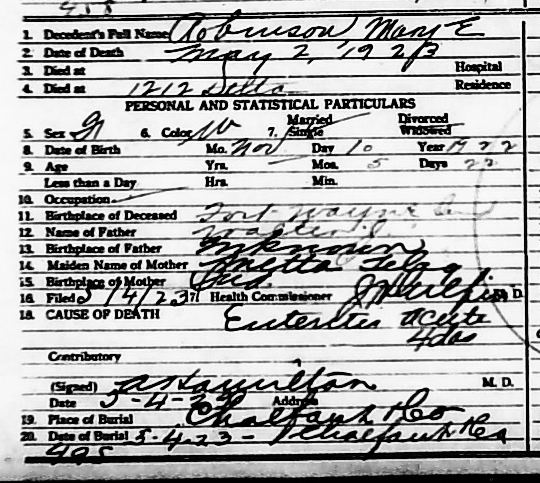 498
1. Decedent's Full Name Robinson Mary E
2. Date of Death May 2, 1923
3. Died at Hospital
4. Died at 1212 Delta Residence
PERSONAL AND STATISTICAL PARTICULARS
5. Sex 6. Color W 7. Married Single Divorced Widowed
8. Date of Birth Mo. Nov Day 10 Year 1922
9. Age Yrs. Mos. 5 Days 22
Less than a Day Hrs. Min.
10. Occupation
11. Birthplace of Deceased Fort Wayne Ind
12. Name of Father Walter
13. Birthplace of Father Unknown
14. Maiden Name of Mother Metta
15. Birthplace of Mother Ind.
16. Filed 5/4/23 17. Health Commissioner M. D.
18. CAUSE OF DEATH Enteritis acute
4 das
Contributory
(Signed) A Hamilton M. D.
Date 5-4-23 Address
19. Place of Burial Chalfant
20. Date of Burial 5-4-23 - Chalfant
498